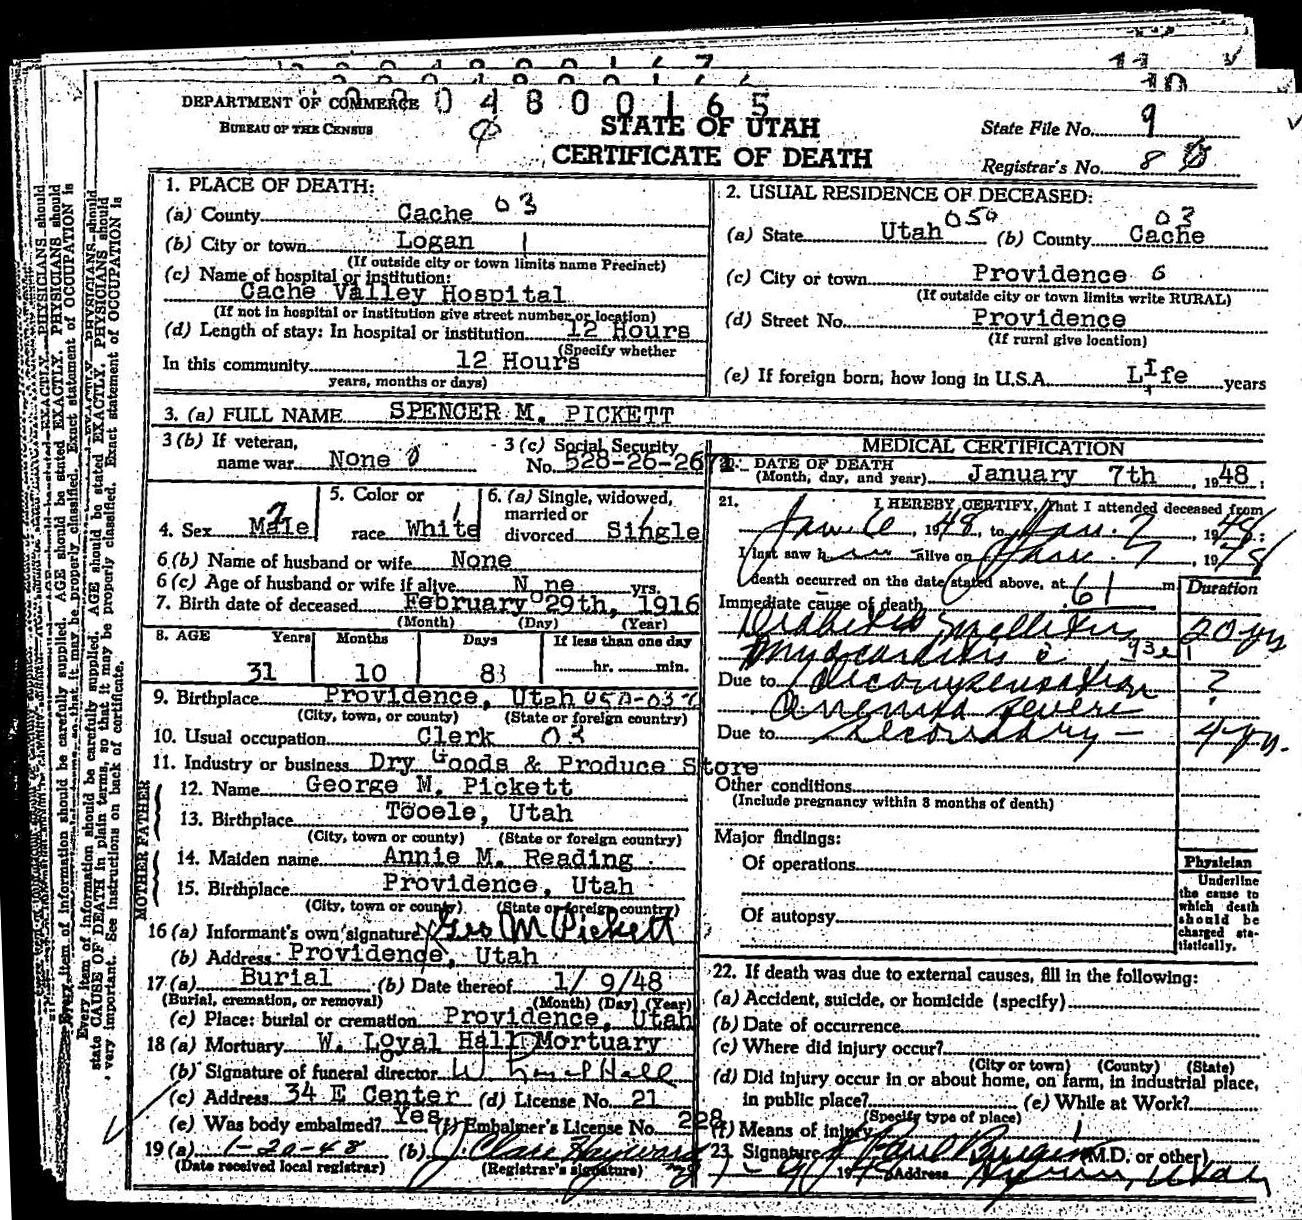 DEPARTMENT OF COMMERCE 04800165
BUREAU OF THE CENSUS
STATE OF UTAH
CERTIFICATE OF DEATH
State File No. 9
Registrar's No. 8
1. PLACE OF DEATH:
(a) County Cache 03
(b) City or town Logan 1
(If outside city or town limits name Precinct)
(c) Name of hospital or institution:
Cache Valley Hospital
(If not in hospital or institution give street number or location)
(d) Length of stay: In hospital or institution 12 Hours
(Specify whether
In this community 12 Hours
years, months or days)
2. USUAL RESIDENCE OF DECEASED:
(a) State Utah 050 (b) County Cache 03
(c) City or town Providence 6
(If outside city or town limits write RURAL)
(d) Street No. Providence
(If rural give location)
(e) If foreign born, how long in U.S.A. Life years
3. (a) FULL NAME SPENCER M. PICKETT
3 (b) If veteran,
name war None 0
3 (c) Social Security
No. 528-26-267
4. Sex Male
5. Color or
race White
6. (a) Single, widowed,
married or
divorced Single
6 (b) Name of husband or wife None
6 (c) Age of husband or wife if alive None yrs.
7. Birth date of deceased February 29th, 1916
(Month) (Day) (Year)
8. AGE Years Months Days If less than one day
31 10 8 hr. min.
9. Birthplace Providence, Utah
(City, town, or county) (State or foreign country)
10. Usual occupation Clerk 03
11. Industry or business Dry Goods & Produce Store
FATHER
12. Name George M. Pickett
13. Birthplace Tooele, Utah
(City, town or county) (State or foreign country)
MOTHER
14. Maiden name Annie M. Reading
15. Birthplace Providence, Utah
(City, town or county) (State or foreign country)
16 (a) Informant's own signature x Geo M Pickett
(b) Address Providence, Utah
17 (a) Burial (b) Date thereof 1/ 9/48
(Burial, cremation, or removal) (Month) (Day) (Year)
(c) Place: burial or cremation Providence, Utah
18 (a) Mortuary W. Loyal Hall Mortuary
(b) Signature of funeral director W. Loyal Hall
(c) Address 34 E Center (d) License No. 21
(e) Was body embalmed? Yes (f) Embalmer's License No. 228
19 (a) 1-20-48 (b) J. Clare Hayward
(Date received local registrar) (Registrar's signature)
MEDICAL CERTIFICATION
20. DATE OF DEATH
(Month, day, and year) January 7th, 1948.
21. I HEREBY CERTIFY, That I attended deceased from
Jan. 6, 1948, to Jan. 7, 1948:
I last saw him alive on Jan. 7, 1948
death occurred on the date stated above, at 61 m
Duration
Immediate cause of death
Diabetes Mellitus 20 yrs
Myocarditis c
Due to decompensation ?
Anemia severe
Due to secondary - 4 yrs.
Other conditions
(Include pregnancy within 3 months of death)
Major findings:
Of operations
Of autopsy
Physician
Underline
the cause to
which death
should be
charged sta-
tistically.
22. If death was due to external causes, fill in the following:
(a) Accident, suicide, or homicide (specify)
(b) Date of occurrence
(c) Where did injury occur?
(City or town) (County) (State)
(d) Did injury occur in or about home, on farm, in industrial place,
in public place? (e) While at Work?
(Specify type of place)
(f) Means of injury
23. Signature (M.D. or other)
1-9 1948 Address Hyrum, Utah
Every item of information should be carefully supplied. AGE should be stated EXACTLY. PHYSICIANS should
state CAUSE OF DEATH in plain terms, so that it may be properly classified. Exact statement of OCCUPATION is
very important. See instructions on back of certificate.